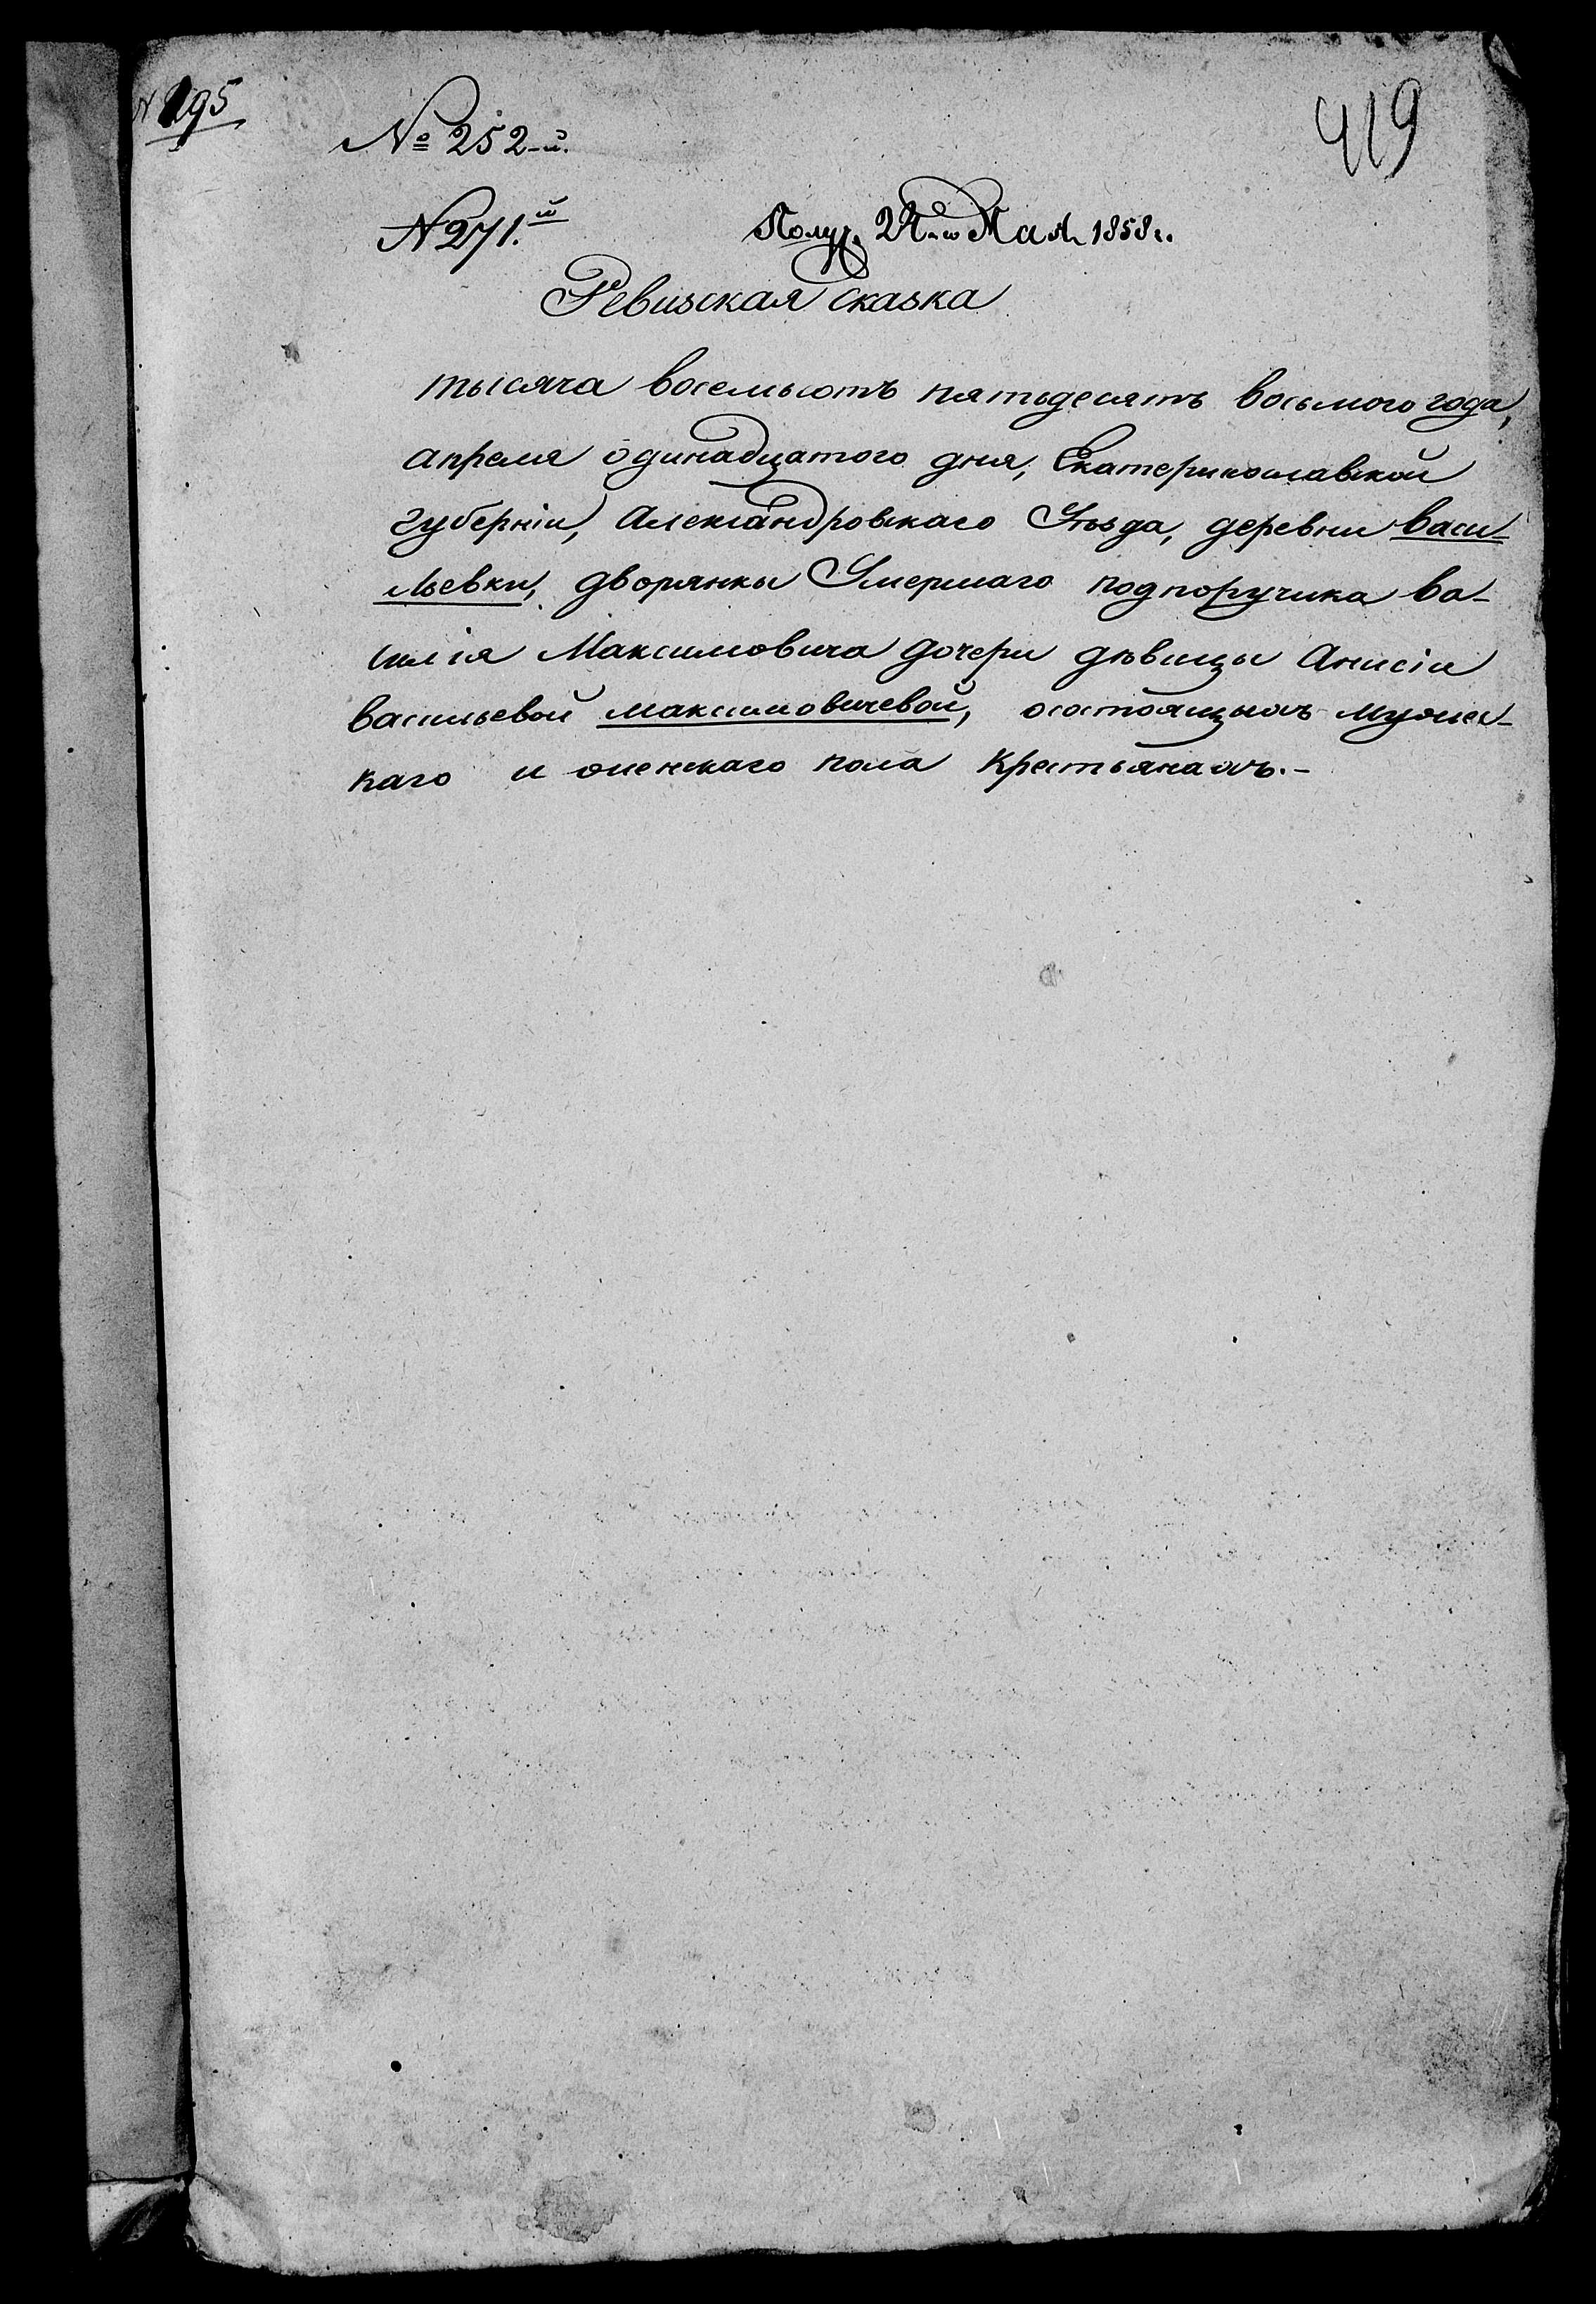 N 195
419
№ 252-й.
N 271.й
Получ. 24-го Мая 1858 г.
Ревизская сказка
тысяча восемьсотъ пятьдесятъ восьмого года,
апреля одинадцатого дня, Екатеринославской
губерніи, Александровскаго Уѣзда, деревни Васи-
льевки, дворянки Умершаго подпоручика Ва-
силія Максимовича дочери дѣвицы Анисіи
Васильевой Максимовичевой, о состоящихъ мужес-
каго и женскаго пола крестьянахъ.-